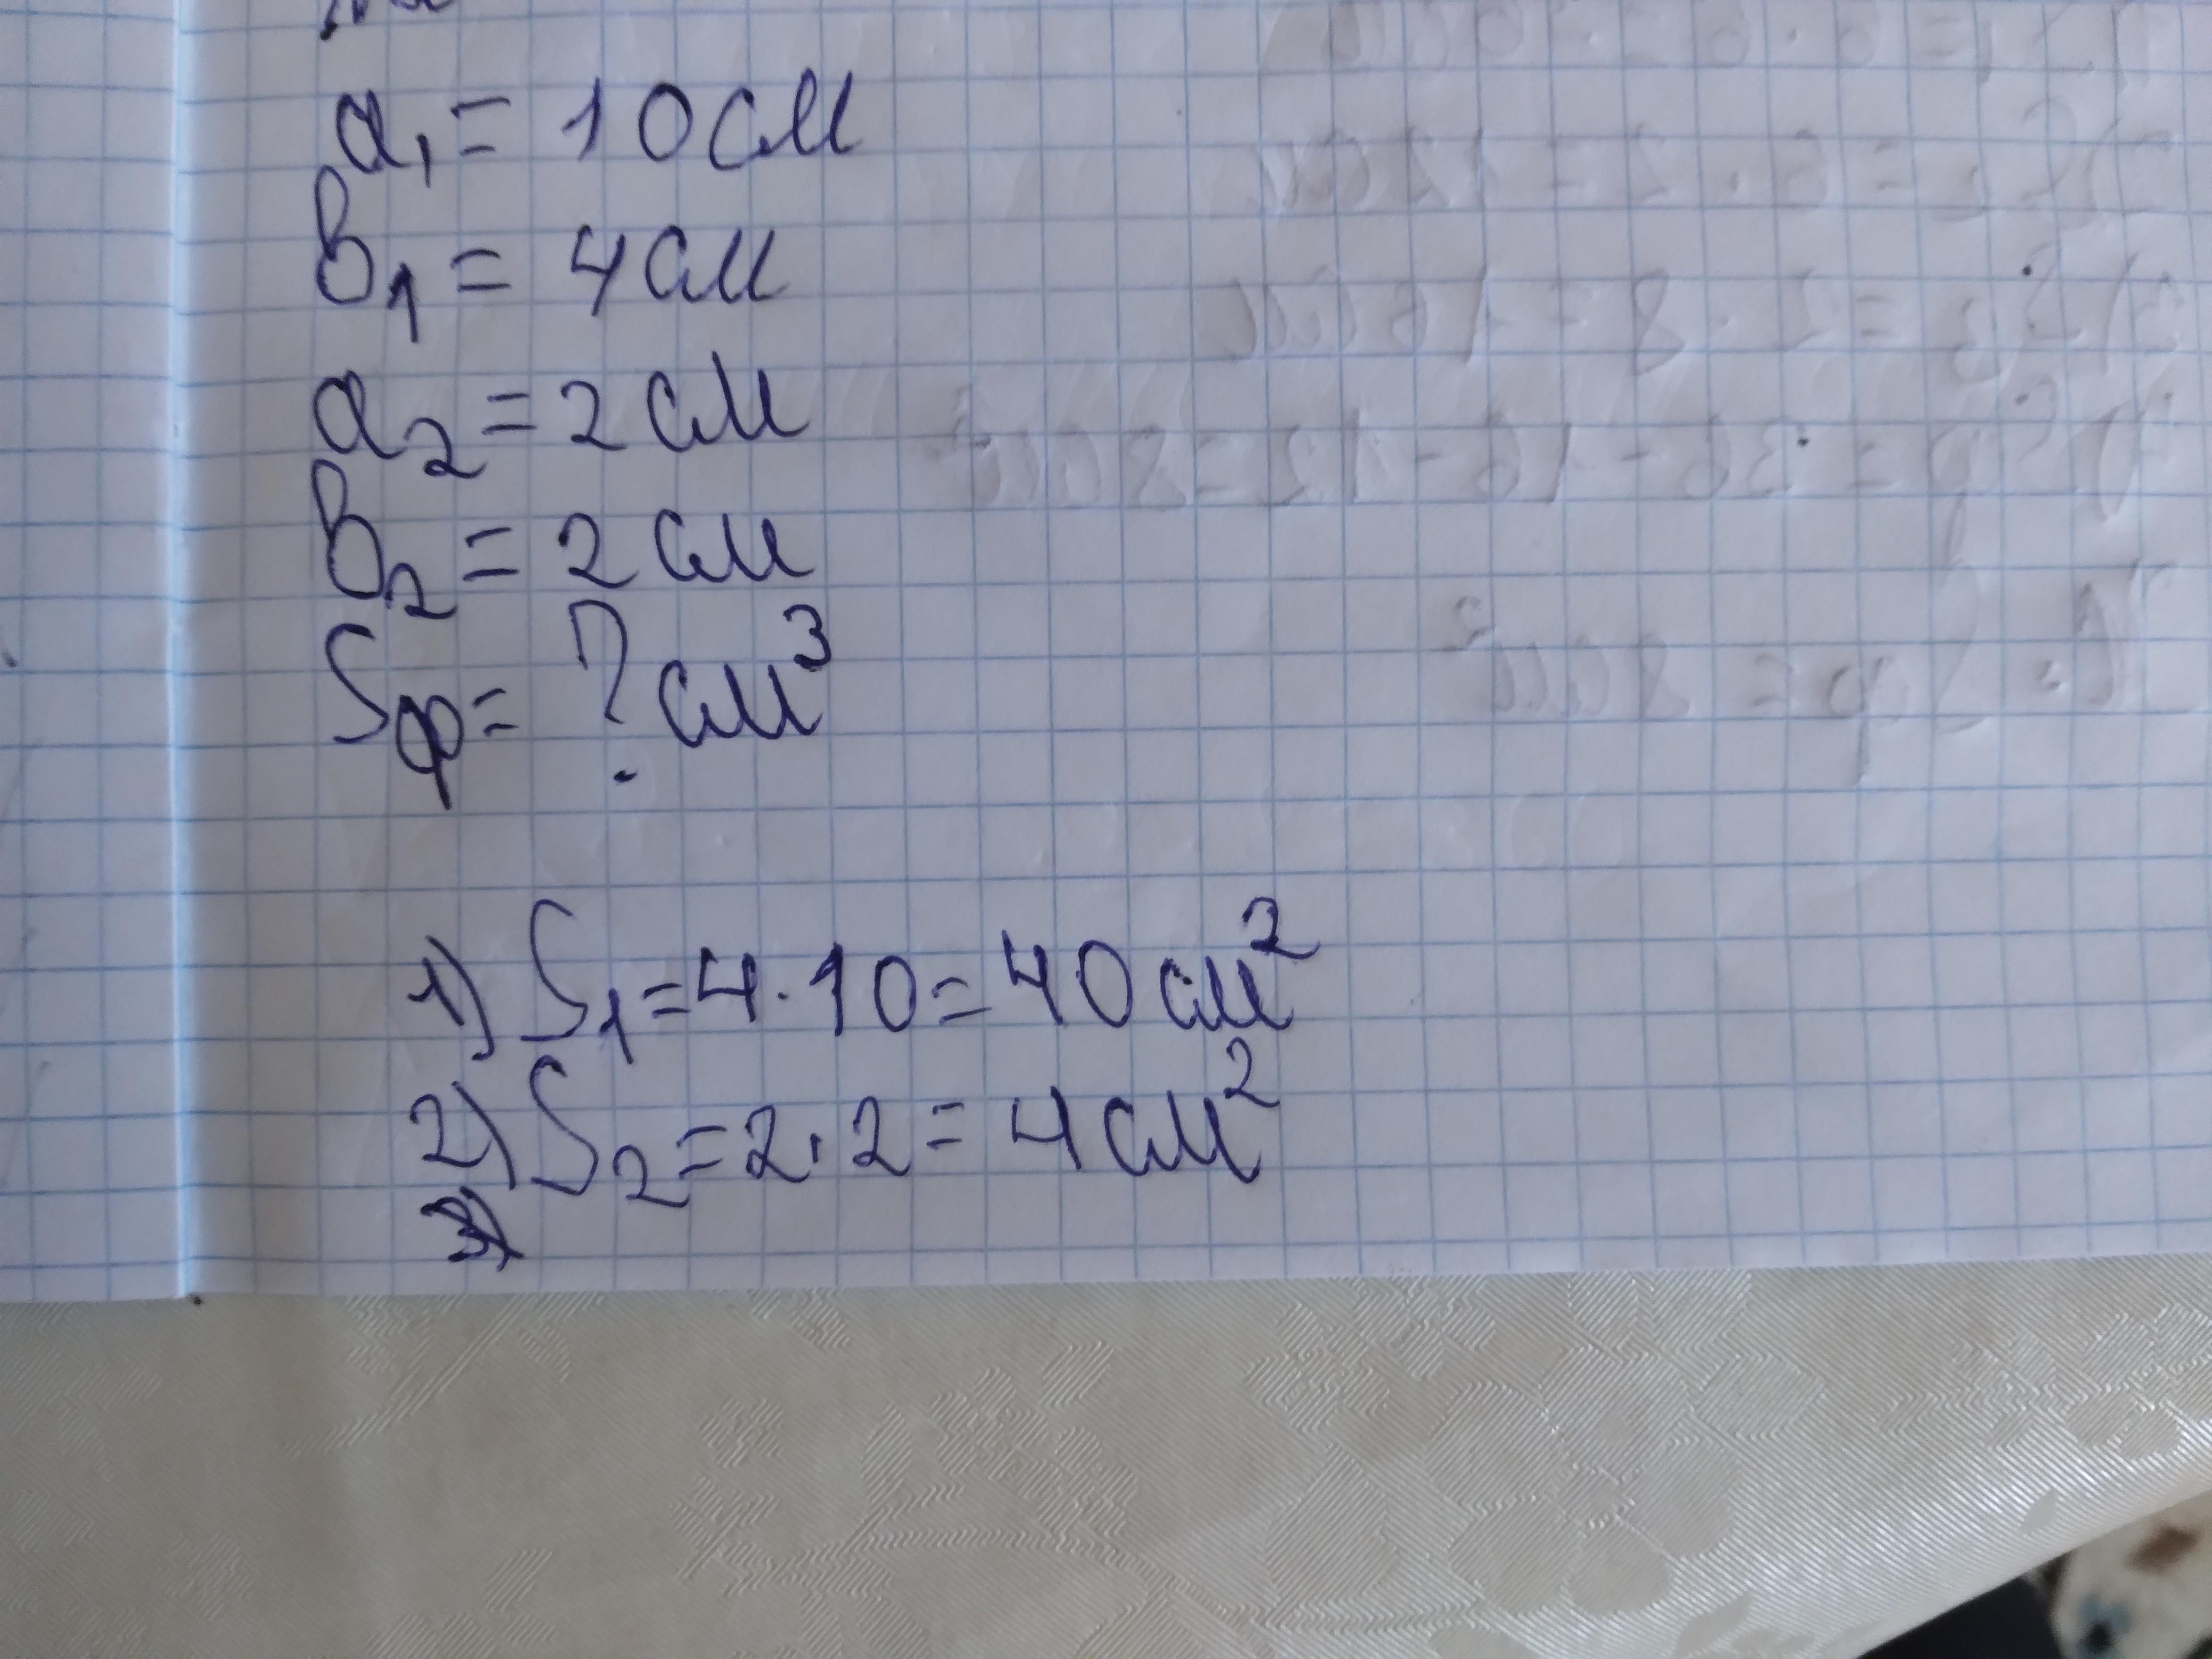 a₁ = 10 см
в₁ = 4 см
a₂ = 2 см
в₂ = 2 см
Sф = ? см³
1) S₁ = 4 · 10 = 40 см²
2) S₂ = 2 · 2 = 4 см²
3)